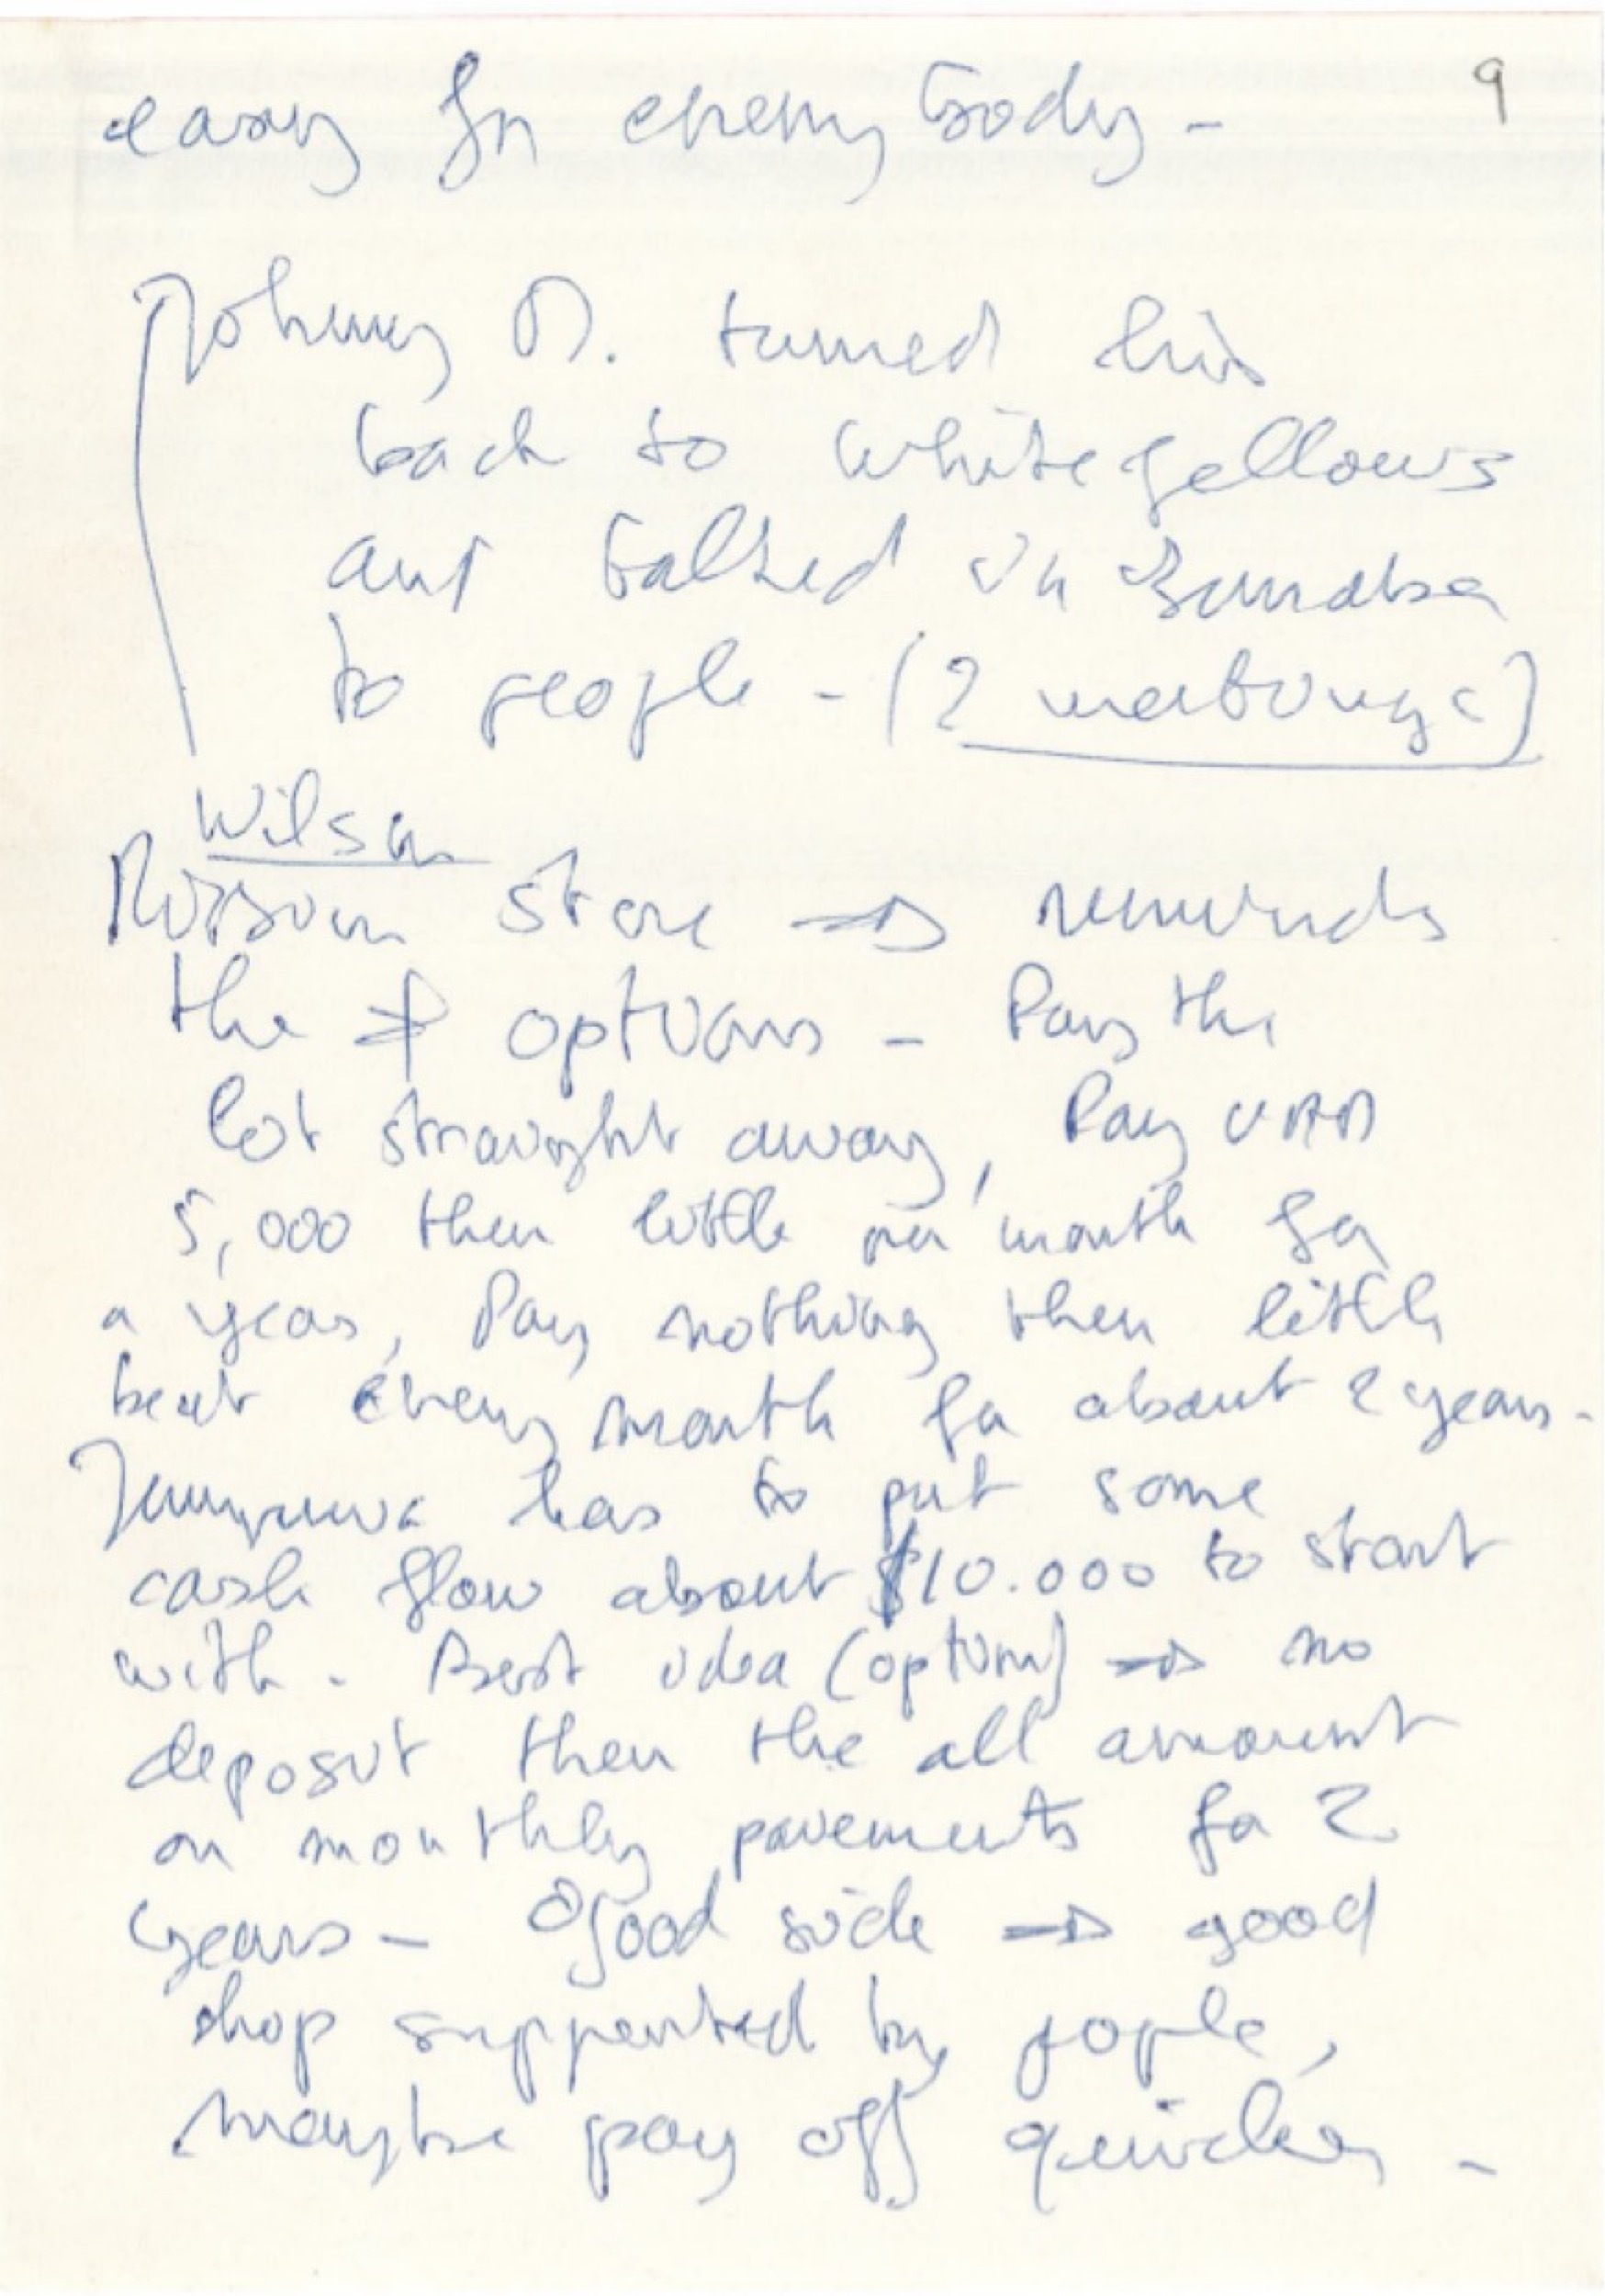 9
easy for everybody -
Johnny D. turned his
back to whitefellows
and talked in
to people - (2 meetings)
Wilson
Mission store ⇒ reminds
the options - Pay the
lot straight away, Pay
5,000 then little per month for
a year, Pay nothing then little
beat every month for about 2 years -
has to put some
cash flow about $10.000 to start
with. Best idea (option) ⇒ no
deposit then the all amount
on monthly pavements for 2
years - Good side ⇒ good
shop supported by people,
maybe pay off quicker -